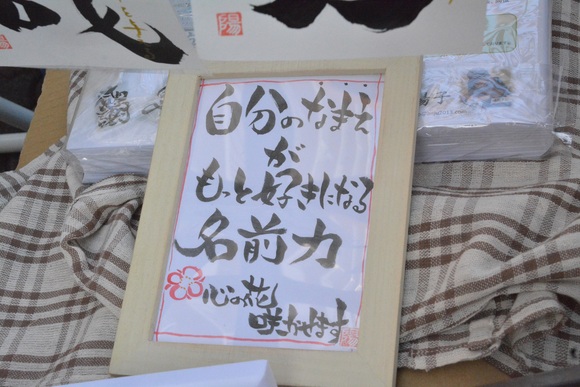 自分のなまえ
が
もっと好きになる
名前力
心の花
咲かせます